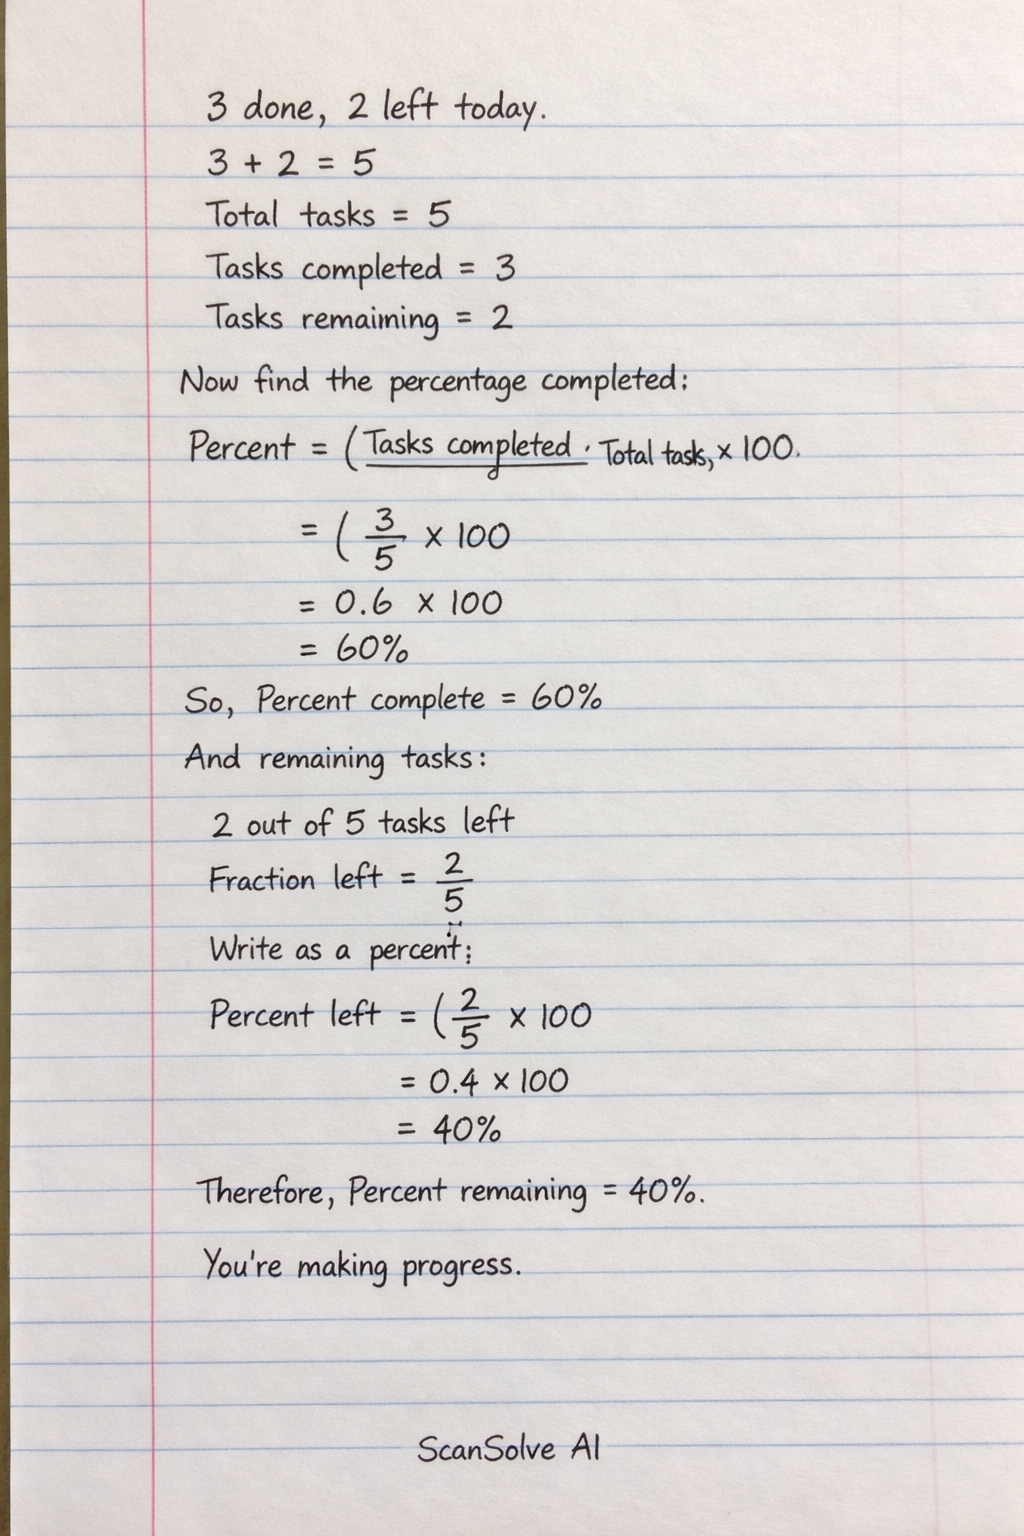 3 done, 2 left today.
3 + 2 = 5
Total tasks = 5
Tasks completed = 3
Tasks remaining = 2
Now find the percentage completed:
Percent = (Tasks completed · Total task, × 100.
= ( 3/5 × 100
= 0.6 × 100
= 60%
So, Percent complete = 60%
And remaining tasks:
2 out of 5 tasks left
Fraction left = 2/5
Write as a percent:
Percent left = ( 2/5 × 100
= 0.4 × 100
= 40%
Therefore, Percent remaining = 40%.
You're making progress.
ScanSolve AI